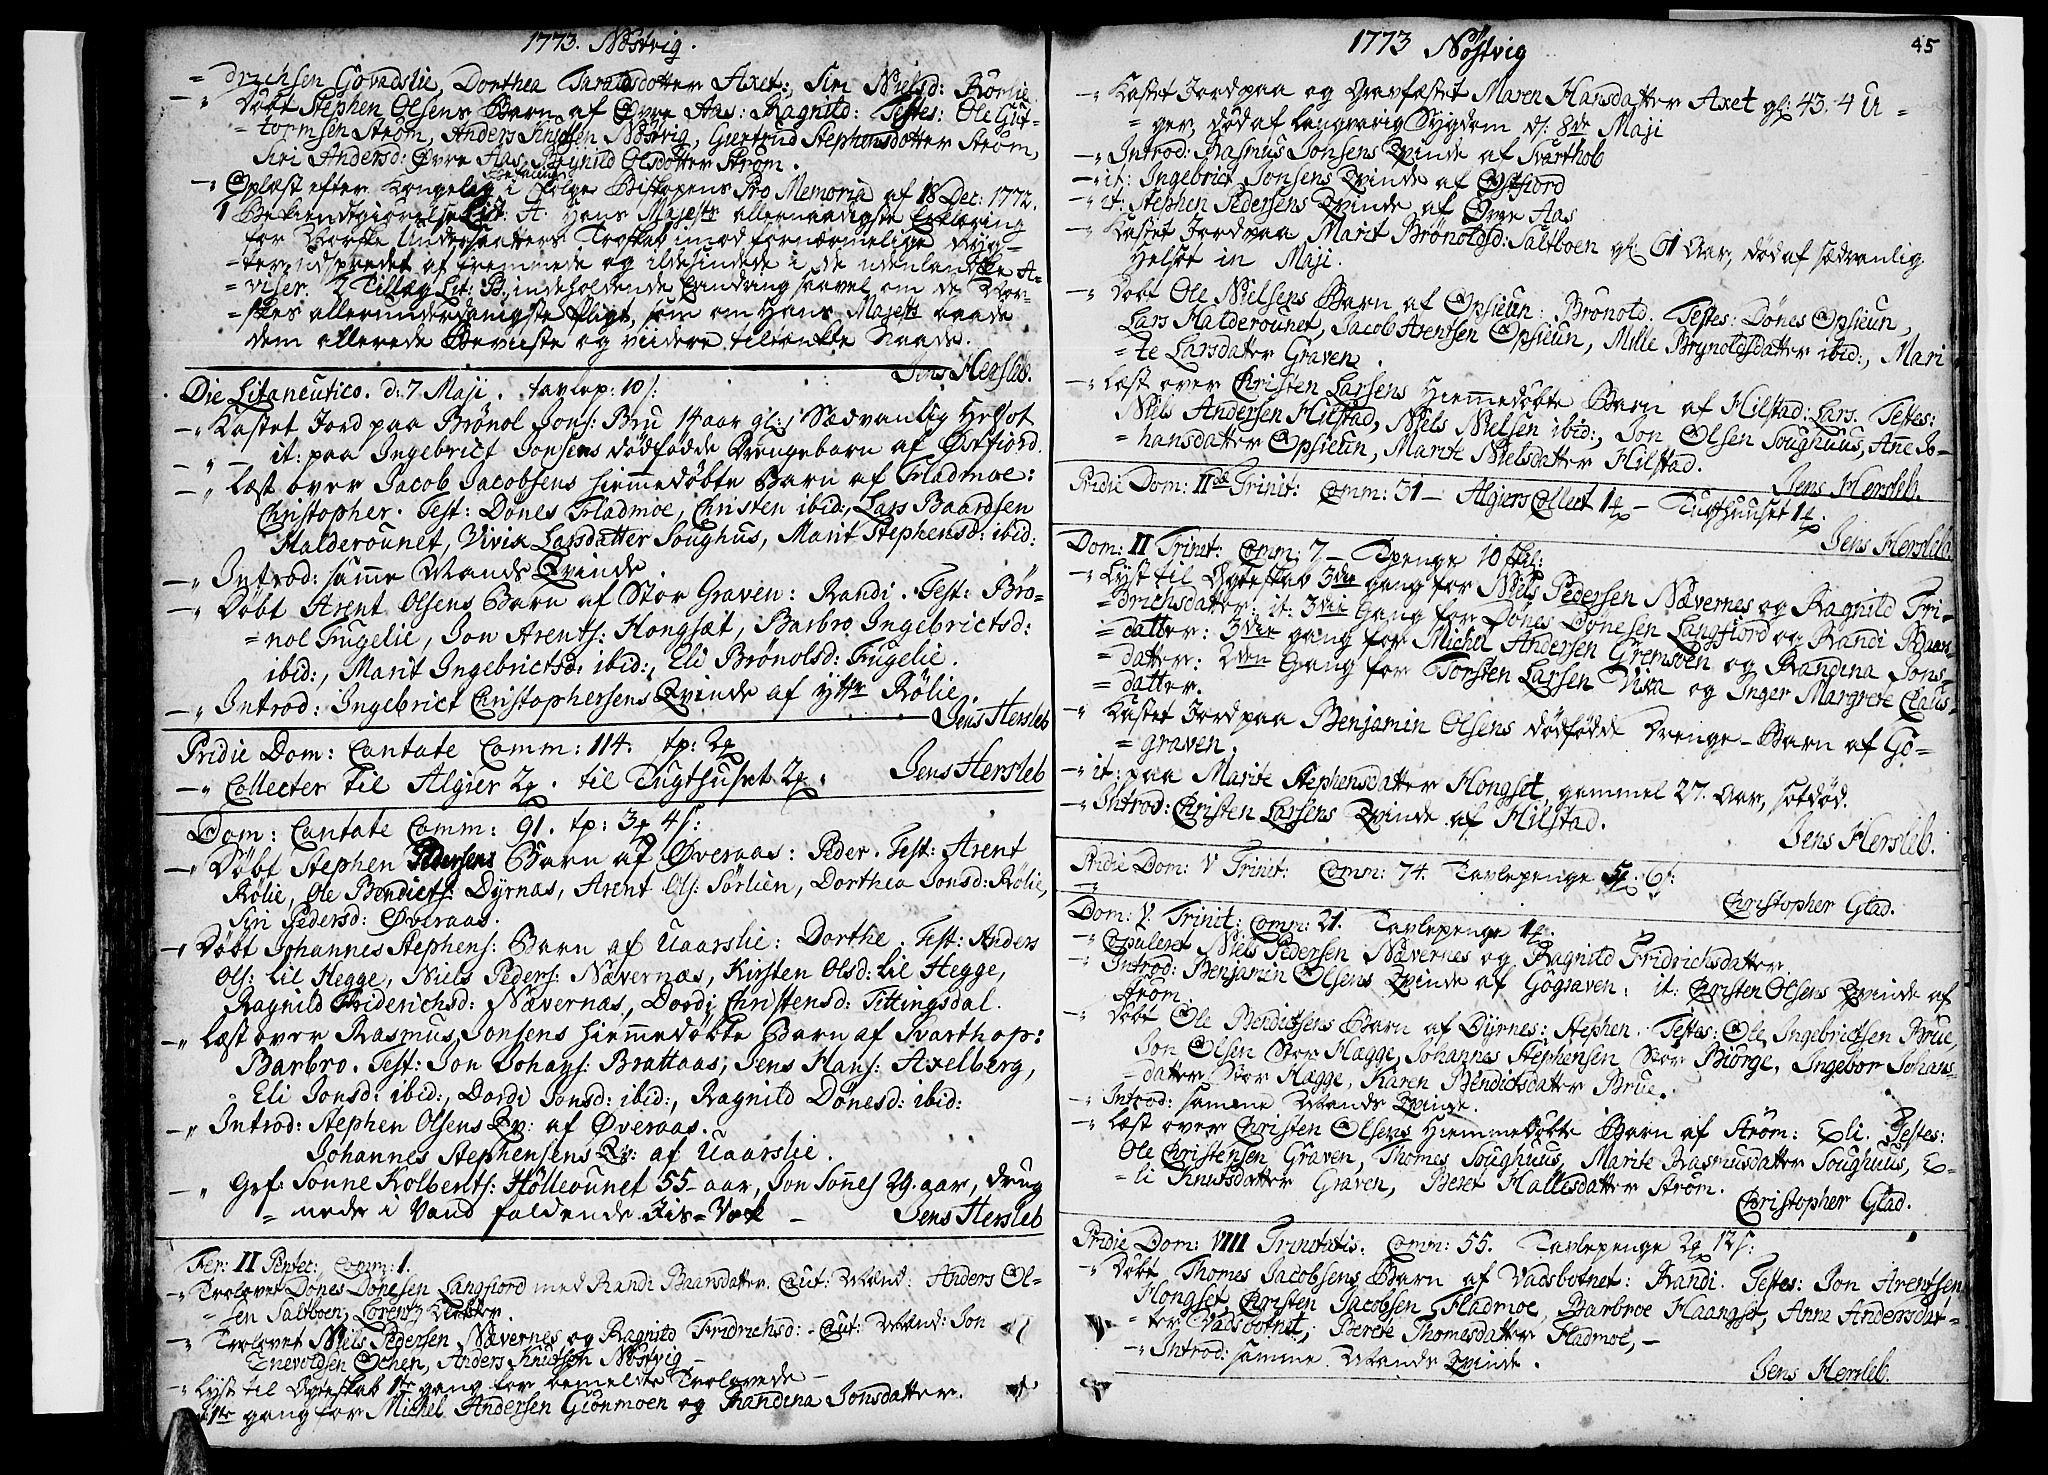 1773. Nøstvig.
= drichsen Govadslie, Dorthea Taraldsdotter Axet:, Siri Nielsd: Rørlie.
-" Døbt Stephen Olsens Barn af Øvre Aas: Ragnild: Testes: Ole Gut-
= tormsen Strøm, Anders Knudsen Nøstvig, Giertrud Stephensdotter Strøm,
Siri Andersd: Øvre Aas, Ragnild Olsdotter Strøm.
-" Oplæst efter Kongelig Befaling i følge Biskopens Pro Memoria af 18 Dec: 1772.
1 Bekiendtgiørelse Lit: A. Hans Majestts allernaadigste Erklæring
for Norske Undersaatters Troskab imod fornærmelige Ryg-
- ter udspredet af fremmede og ildesindede i de udenlandske A-
= viser. 2 Tillæg Lit: B. indeholdende saavel om de Nor-
= skes allerunderdanigste Pligt, som om Hans Majestts naade
dem allerede Beviiste og viidere tiltænkte Naade.
Jens Hersleb.
Die Litaneutico. d: 7 Maji. tavlep: 10 s:
-" Kastet Jord paa Brønol Jons: Bru 14 aar gl: Sædvanlig Helsot
-" - it: paa Ingebrict Jonsens dødfødde Drengebarn af Østfiord.
-" Læst over Jacob Jacobsens hiemmedøbte Barn af Fladmoe:
Christopher. Test: Dønes Fladmoe, Christen ibid:, Lars Baardsen
Halderounet, Vivik Larsdatter Soughus, Marit Stephensd: ibid:
-" Introd: samme Mands Qvinde.
-" Døbt Arent Olsens Barn af Stor Graven: Randi. Test: Brø-
= nol Fugelie, Jon Arents: Hongsæt, Barbro Ingebrictsd:
ibid:, Marit Ingebrictsd: ibid:, Eli Brønolsd: Fugelie.
-" Introd: Ingebrict Christophersens Qvinde af yttr Rølie.
Jens Hersleb
Pridie Dom: Cantate Comm: 114. tp: 2
-" Collecter til Algier 2 . til Tugthuset 2 . Jens Hersleb
Dom: Cantate Comm: 91. tp: 3 4 s:
-" Døbt Stephen Pedersens Barn af Øveraas: Peder. Test: Arent
Rølie, Ole Bendicts: Dyrnas, Arent Ols: Sørlien, Dorthea Jonsd: Rølie,
Siri Pedersd: Øveraas.
-" Døbt Johannes Stephens: Barn af Uaarslie: Dorthe. Test: Anders
Ols: Lil Hegge, Niels Peders: Nævernæs, Kirsten Olsd: Lil Hegge,
Ragnild Friderichsd: Nævernæs, Dordi Christensd: Tittingsdal.
-" Læst over Rasmus Jonsens hiemmedøbte Barn af Svarthop:
Barbro. Test: Jon Johans: Brattaas, Jens Hans: Axelberg,
Eli Jonsd: ibid:, Dordi Jonsd: ibid:, Ragnild Dønesd: ibid:
-" Introd: Stephen Olsens Qv: af Øveraas.
Johannes Stephensens Qv: af Uaarslie.
-" Grf: Sonne Kolbents: Hølleounet 55 - aar, Jon Sones 29. aar, drug
= nede i Vand faldende Iis = Væk - Jens Hersleb
Fer: II Pentec: Comm: 1.
-" Trolovet Dønes Dønesen Langfiord med Randi Baarsdatter. Caut: Mænd: Anders Ol-
= sen Saltboen, Lorentz
-" Trolovet Niels Pedersen Nævernes og Ragnild Fridrichsd: - Caut: Mænd: Jon
Enevoldsen Ochen, Anders Knudsøn Nøstvig -
-" Lyst til Ægteskab 1te gang for bemeldte Trolovede -
-" 1te gang for Michel Andersen Grønmoen og Randina Jonsdatter.
1773 Nøstvig
45
-" Kastet Jord paa og Gravfæstet Maren Hansdatter Axet gl: 43. 4 U =
= ger, død af langvarig Sygdom d: 8de Maji
-" Introd: Rasmus Jonsens Qvinde af Svarthob
-" it: Ingebrict Jonsens Qvinde af Østfiord
-" it: Stephen Pedersens Qvinde af Øvre Aas
-" Kastet Jord paa Marit Brønoldsd: Saltboen gl: 61 Aar, død af sædvanlig
Helsot in Maji.
-" Døbt Ole Nielsens Barn af Opsieun: Brønold. Testes: Dønes Opsieun,
Lars Halderounet, Jacob Arentsen Opsieun, Mille Brynoldsdatter ibid:, Mari
= te Larsdatter Graven.
-" Læst over Christen Larsens Hiemmedøbte Barn af Hilstad: Lars. Testes:
Niels Andersen Hilstad, Niels Nielsen ibid:, Jon Olsen Soughuus, Ane Jo-
= hansdatter Opsieun, Marite Nielsdatter Hilstad.
Jens Hersleb.
Pridie Dom: IIde Trinit: Comm: 31 - Algiers Collect 1 - Tugthuuset 1 .
Jens Hersleb.
Dom: II Trinit: Comm: 7. - Tpenge 10 skil:
-" Lyst til Ægteskab 3die gang for Niels Pedersen Nævernes og Ragnild Fri-
= drichsdatter: it: 3die Gang for Dønes Dønesen Langfiord og Randi Baars-
= datter: 3die gang for Michel Andersen Gremoen og Randina Jons-
= datter: 2den Gang for Torsten Larsen Vixa og Inger Margrete Claus-
= datter.
-" Kastet Jord paa Benjamin Olsens dødfødde Drenge-Barn af Gø-
= graven.
-" it: paa Marite Stephensdatter Hongset, gammel 27. Aar, sotdød.
-" Introd: Christen Larsens Qvinde af Hilstad.
Jens Hersleb.
Pridie Dom: V Trinit: Comm: 74. Tavlepenge 5 . 6 s:
Christopher Glad.
Dom: V. Trinit: Comm: 21. Tavlepenge 1 .
-" Copuleret Niels Pedersen Nævernes og Ragnild Fridrichsdatter.
-" Introd: Benjamin Olsens Qvinde af Gøgraven. it: Christen Olsens Qvinde af
Strøm.
-" Døbt Ole Bendictsens Barn af Dyrnes: Stephen. Testes: Ole Ingebrictsen Brue,
Jon Olsen Stor Hægge, Johannes Stephensen Stor Biørge, Ingebor Johans-
= datter Stor Hægge, Karen Bendictsdatter Brue.
-" Introd: samme Mands Qvinde.
-" Læst over Christen Olsens Hiemmedøbte Barn af Strøm: Eli. Testes:
Ole Christensen Graven, Thomes Soughuus, Marite Rasmusdatter Soughuus, E-
= li Knudsdatter Graven, Beret Hallesdatter Strøm.
Christopher Glad.
Pridie Dom: VIII Trinitatis. Comm: 55. Tavlepenge 2 12 s:
-" Døbt Thomes Jacobsens Barn af Vadsbotnet: Randi. Testes: Jon Arentsen
Hongset, Christen Jacobsen Fladmoe, Barbroe Haangset, Anne Andersdat-
= ter Vadsbotnet, Berete Thomesdatter Fladmoe, -
-" Introd: samme Mands Qvinde.
Jens Hersleb.